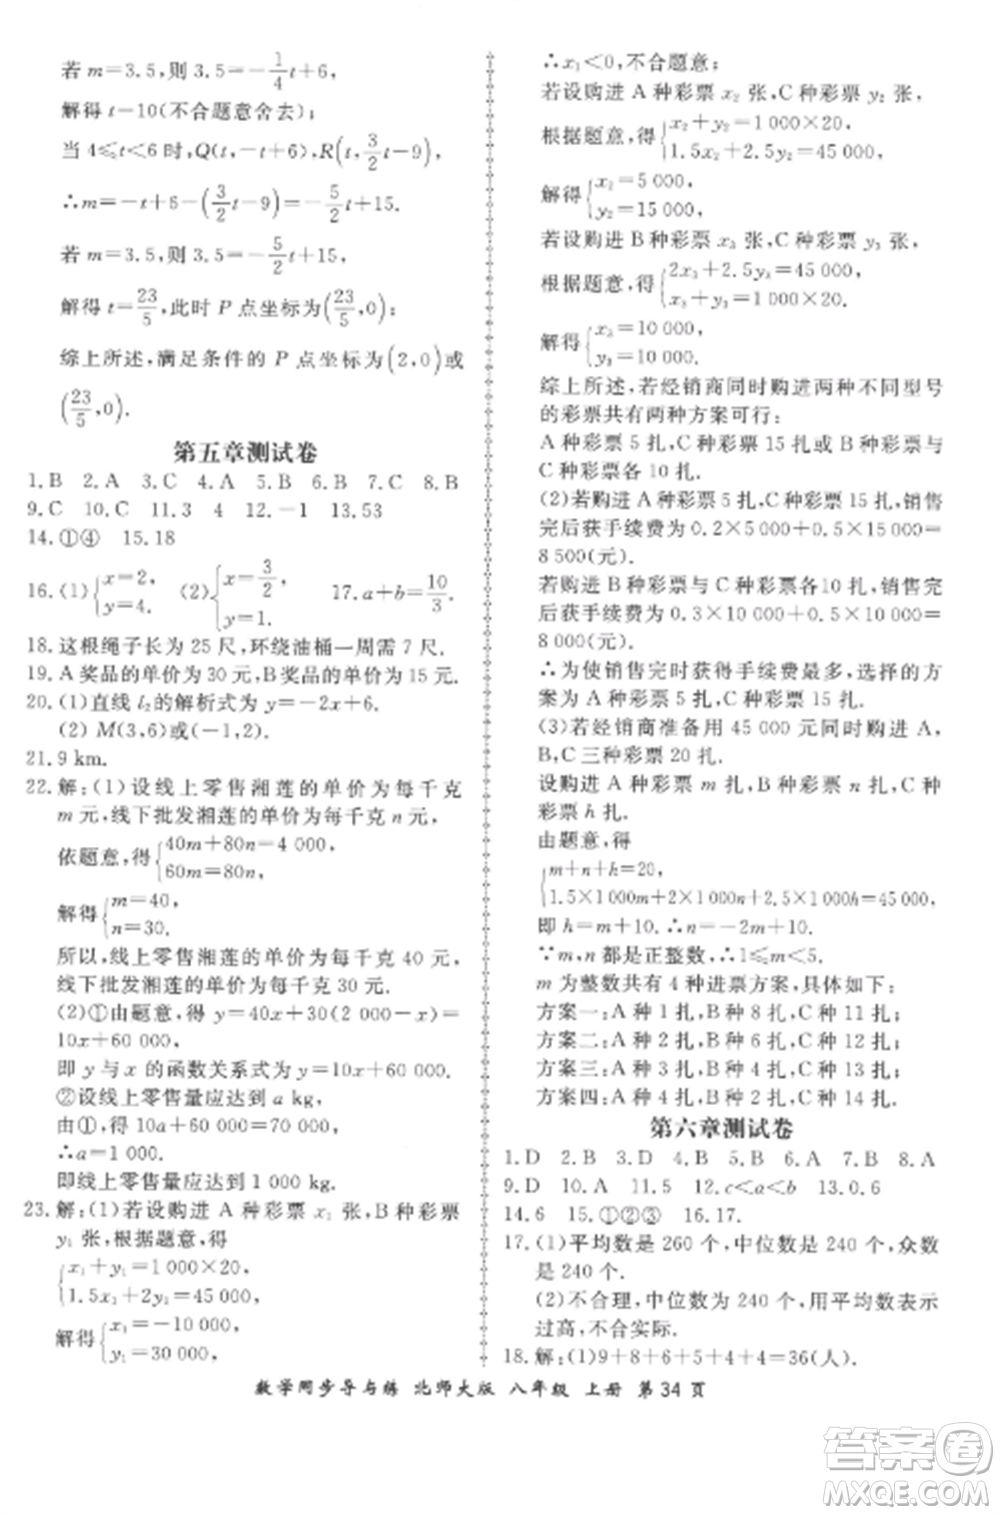 若 m=3.5,则 3.5=-1/4t+6,
解得 t=10(不合题意舍去);
当 4≤t<6 时,Q(t,-t+6),R(t,3/2t-9),
∴m=-t+6-(3/2t-9)=-5/2t+15.
若 m=3.5,则 3.5=-5/2t+15.
解得 t=23/5,此时 P 点坐标为(23/5,0);
综上所述,满足条件的 P 点坐标为(2,0)或
(23/5,0).
第五章测试卷
1.B 2.A 3.C 4.A 5.B 6.B 7.B 8.B
9.C 10.C 11.3 4 12.-1 13.53
14.①④ 15.18
16.(1){x=2, y=4. (2){x=3/2, y=1. 17.a+b=10/3.
18.这根绳子长为 25 尺,环绕油桶一周需 7 尺.
19.A 奖品的单价为 30 元,B 奖品的单价为 15 元.
20.(1)直线 l₂的解析式为 y=-2x+6.
(2) M(3,6)或(-1,2).
21.9 km.
22.解:(1)设线上零售湘莲的单价为每千克
m 元,线下批发湘莲的单价为每千克 n 元.
依题意,得{40m+80n=4 000, 60m=80n,
解得{m=40, n=30.
所以,线上零售湘莲的单价为每千克 40 元,
线下批发湘莲的单价为每千克 30 元.
(2)①由题意,得 y=40x+30(2 000-x)=
10x+60 000,
即 y 与 x 的函数关系式为 y=10x+60 000.
②设线上零售量应达到 a kg,
由①,得 10a+60 000=70 000,
∴a=1 000.
即线上零售量应达到 1 000 kg.
23.解:(1)若设购进 A 种彩票 x₁ 张,B 种彩票
y₁ 张,根据题意,得
{x₁+y₁=1 000×20, 1.5x₁+2y₁=45 000,
解得{x₁=-10 000, y₁=30 000,
∴x₁<0,不合题意;
若设购进 A 种彩票 x₂ 张,C 种彩票 y₂ 张,
根据题意,得{x₂+y₂=1 000×20, 1.5x₂+2.5y₂=45 000,
解得{x₂=5 000, y₂=15 000,
若设购进 B 种彩票 x₃ 张,C 种彩票 y₃ 张,
根据题意,得{2x₃+2.5y₃=45 000, x₃+y₃=1 000×20.
解得{x₃=10 000, y₃=10 000,
综上所述,若经销商同时购进两种不同型号
的彩票共有两种方案可行:
A 种彩票 5 扎,C 种彩票 15 扎或 B 种彩票与
C 种彩票各 10 扎.
(2)若购进 A 种彩票 5 扎,C 种彩票 15 扎,销售
完后获手续费为 0.2×5 000+0.5×15 000=
8 500(元).
若购进 B 种彩票与 C 种彩票各 10 扎,销售完
后获手续费为 0.3×10 000+0.5×10 000=
8 000(元).
∴为使销售完时获得手续费最多,选择的方
案为 A 种彩票 5 扎,C 种彩票 15 扎.
(3)若经销商准备用 45 000 元同时购进 A、
B、C 三种彩票 20 扎.
设购进 A 种彩票 m 扎,B 种彩票 n 扎,C 种
彩票 h 扎.
由题意,得
{m+n+h=20, 1.5×1 000m+2×1 000n+2.5×1 000h=45 000,
即 h=m+10.∴n=-2m+10.
∵m,n 都是正整数,∴1≤m<5.
m 为整数共有 4 种进票方案,具体如下:
方案一:A 种 1 扎,B 种 8 扎,C 种 11 扎;
方案二:A 种 2 扎,B 种 6 扎,C 种 12 扎;
方案三:A 种 3 扎,B 种 4 扎,C 种 13 扎;
方案四:A 种 4 扎,B 种 2 扎,C 种 14 扎.
第六章测试卷
1.D 2.B 3.D 4.D 5.B 6.A 7.B 8.A
9.D 10.A 11.5 12.c<a<b 13.0.6
14.6 15.①②③ 16.17.
17.(1)平均数是 260 个,中位数是 240 个,众数
是 240 个.
(2)不合理,中位数为 240 个,用平均数表示
过高,不合实际.
18.解:(1)9+8+6+5+4+4=36(人).
数学同步导与练 北师大版 八年级 上册 第 34 页
答案卷